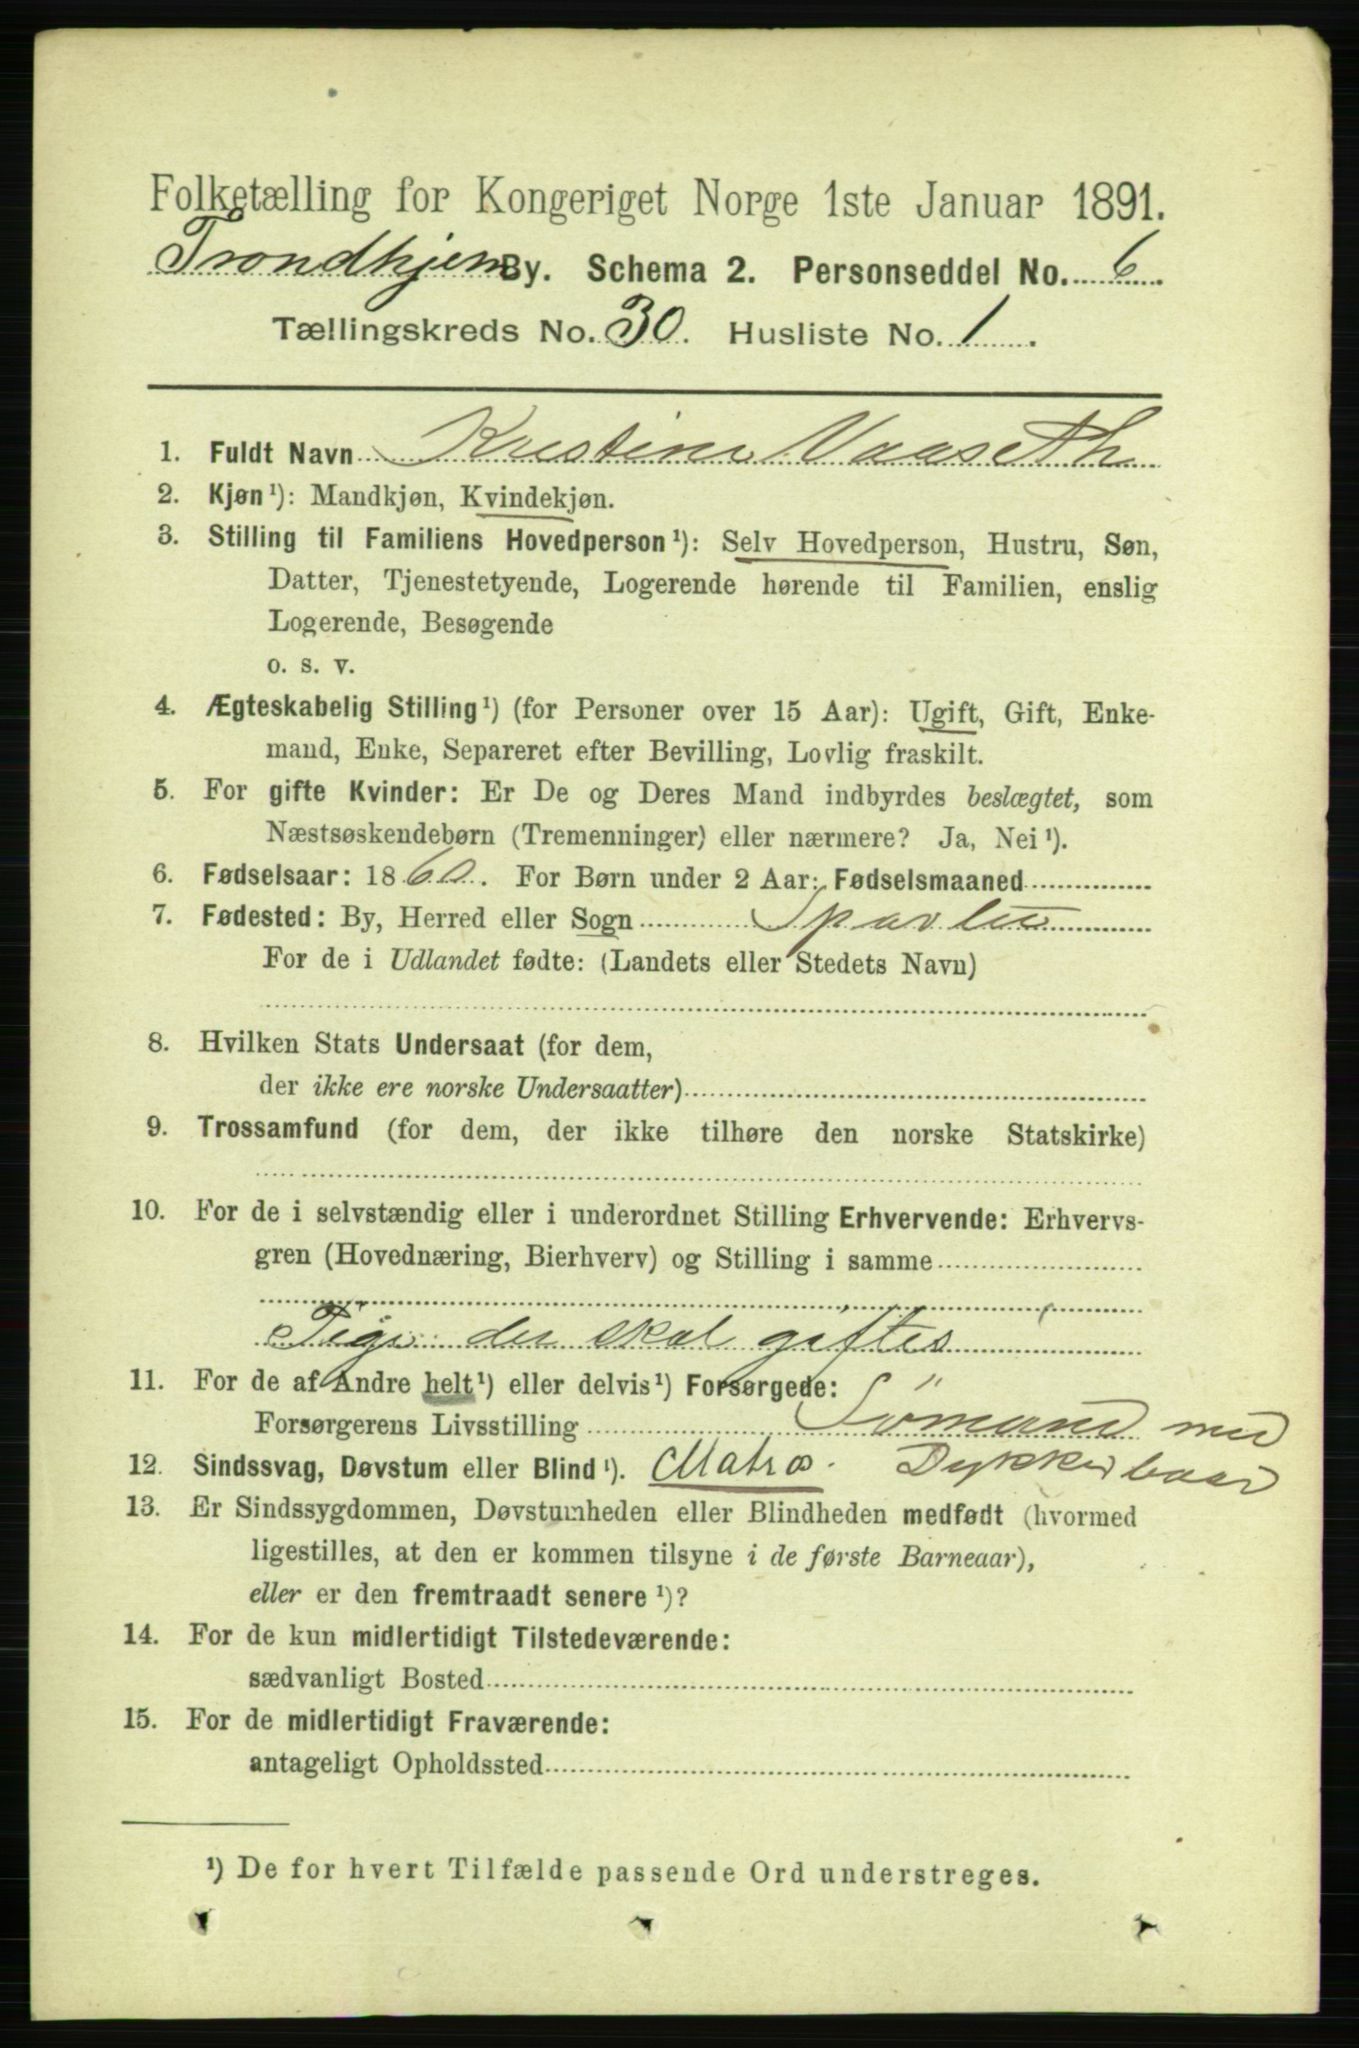 Folketælling for Kongeriget Norge 1ste Januar 1891.
Trondhjem By. Schema 2. Personseddel No. 6.
Tællingskreds No. 30. Husliste No. 1.
1. Fuldt Navn Kristine Vaaseth
2. Kjøn¹): Mandkjøn, Kvindekjøn.
3. Stilling til Familiens Hovedperson¹): Selv Hovedperson, Hustru, Søn,
Datter, Tjenestetyende, Logerende hørende til Familien, enslig
Logerende, Besøgende
o. s. v.
4. Ægteskabelig Stilling¹) (for Personer over 15 Aar): Ugift, Gift, Enke-
mand, Enke, Separeret efter Bevilling, Lovlig fraskilt.
5. For gifte Kvinder: Er De og Deres Mand indbyrdes beslægtet, som
Næstsøskendebørn (Tremenninger) eller nærmere? Ja, Nei¹).
6. Fødselsaar: 1860. For Børn under 2 Aar: Fødselsmaaned
7. Fødested: By, Herred eller Sogn Sparbu
For de i Udlandet fødte: (Landets eller Stedets Navn)
8. Hvilken Stats Undersaat (for dem,
der ikke ere norske Undersaatter)
9. Trossamfund (for dem, der ikke tilhøre den norske Statskirke)
10. For de i selvstændig eller i underordnet Stilling Erhvervende: Erhvervs-
gren (Hovednæring, Bierhverv) og Stilling i samme
Pige der skal giftes
11. For de af Andre helt¹) eller delvis¹) Forsørgede:
Forsørgerens Livsstilling Sömand med
12. Sindssvag, Døvstum eller Blind¹). Matros. Dykkerbaad
13. Er Sindssygdommen, Døvstumheden eller Blindheden medfødt (hvormed
ligestilles, at den er kommen tilsyne i de første Barneaar),
eller er den fremtraadt senere¹)?
14. For de kun midlertidigt Tilstedeværende:
sædvanligt Bosted
15. For de midlertidigt Fraværende:
antageligt Opholdssted
¹) De for hvert Tilfælde passende Ord understreges.